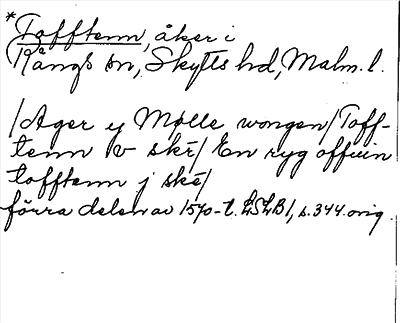 *Tofftenn, åker i
Kångs sn, Skytts hd, Malm. l.
/Ager y Mølle wongen/Toff-
tenn v ske/ En ryg offuin
tofftenn j ske/
förra delen av 1570-t. LSLB1, s. 344. orig.